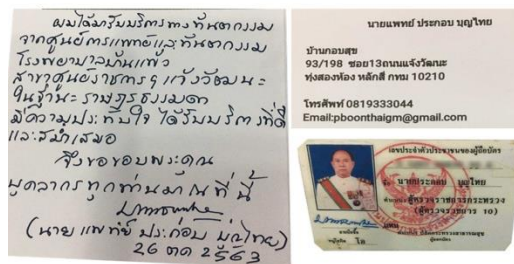 ผมได้มารับบริการทางทันตกรรม
จากศูนย์การแพทย์และทันตกรรม
โรงพยาบาลบ้านแพ้ว
สาขาศูนย์ราชการฯ แจ้งวัฒนะ
ในฐานะ ราษฎรธรรมดา
มีความประทับใจ ได้รับบริการที่ดี
และสม่ำเสมอ
จึงขอขอบพระคุณ
บุคลากรทุกท่านมา ณ ที่นี้
(นายแพทย์ ประกอบ บุญไทย)
26 ตค 2563
นายแพทย์ ประกอบ บุญไทย
บ้านกอบสุข
93/198 ซอย13ถนนแจ้งวัฒนะ
ทุ่งสองห้อง หลักสี่ กทม 10210
โทรศัพท์ 0819333044
Email:pboonthaigm@gmail.com
เลขประจำตัวประชาชนของผู้ถือบัตร
ชื่อ นายประกอบ บุญไทย
ตำแหน่ง ผู้ตรวจราชการกระทรวง
(ผู้ตรวจราชการ 10)
ลายมือชื่อ
หมู่โลหิต โอ